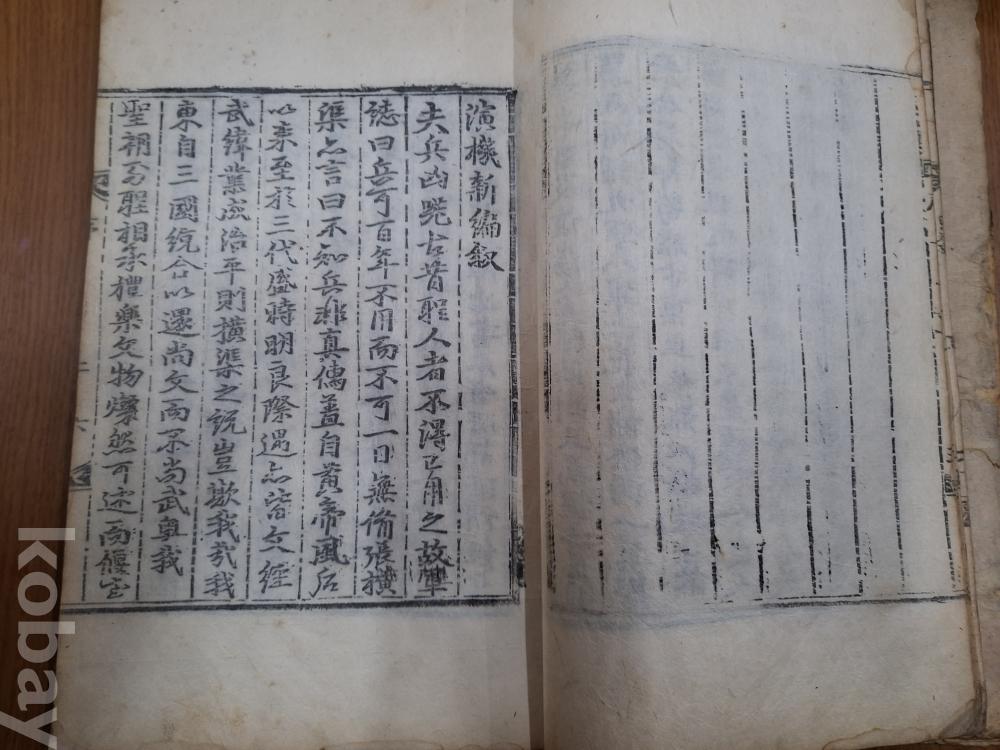 演機新編叙
夫兵凶器古昔聖人者不得已用之故韋
誌曰兵可百年不用而不可一日無備張橫
渠亦言曰不知兵非真儒盖自黄帝風后
以来至於三代盛時明良際遇亦皆文經
武緯業成治平則橫渠之說豈欺我哉我
東自三國統合以還尚文而不尚武粤我
聖朝 聖相承禮樂文物燦然可述而偃
kobay